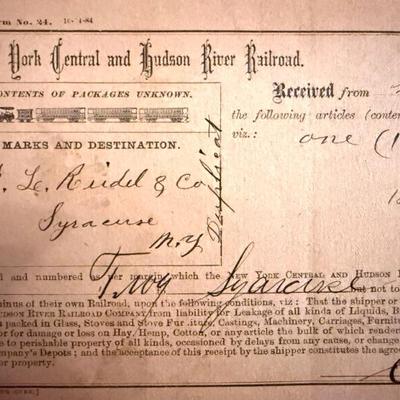 rm No. 24. 10-4-84
York Central and Hudson River Railroad.
CONTENTS OF PACKAGES UNKNOWN.
MARKS AND DESTINATION.
Syracuse
N.Y
Duplicat
Received from
the following articles (conten
viz.:
one (1
d and numbered as per margin which the NEW YORK CENTRAL AND HUDSON
Syracuse
but not to
minus of their own Railroad, upon the following conditions, viz: That the shipper or
HUDSON RIVER RAILROAD COMPANY from liability for Leakage of all kinds of Liquids, B
packed in Glass, Stoves and Stove Furniture, Castings, Machinery, Carriages, Furnitu
or for damage or loss on Hay, Hemp, Cotton, or any article the bulk of which render
e to perishable property of all kinds, occasioned by delays from any cause, or change
ompany's Depots; and the acceptance of this receipt by the shipper constitutes the agree
r property.